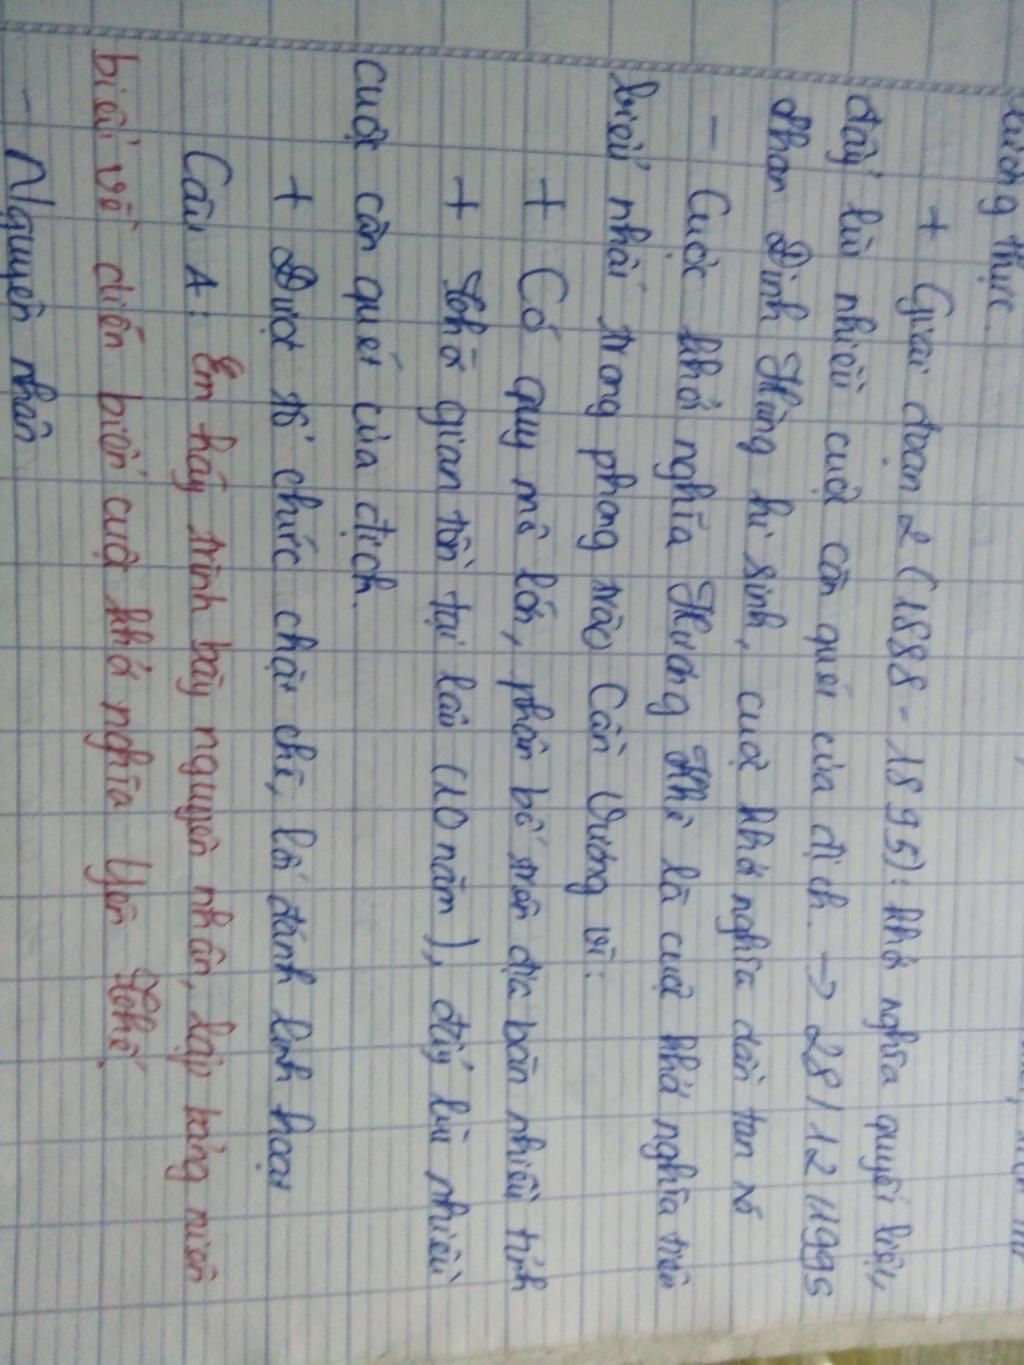 lương thực.
+ Giai đoạn 2 (1888 - 1895): khởi nghĩa quyết liệt,
đẩy lùi nhiều cuộc càn quét của địch. → 28/12/1995
Phan Đình Phùng hi sinh, cuộc khởi nghĩa dần tan rã
- Cuộc khởi nghĩa Hương Khê là cuộc khởi nghĩa tiêu
biểu nhất trong phong trào Cần Vương vì:
+ Có quy mô lớn, phân bố trên địa bàn nhiều tỉnh
+ Thời gian tồn tại lâu (10 năm), đẩy lùi nhiều
cuộc càn quét của địch.
+ Được tổ chức chặt chẽ, lối đánh linh hoạt
Câu 4: Em hãy trình bày nguyên nhân, lập bảng niên
biểu về diễn biến cuộc khởi nghĩa Yên Thế.
- Nguyên nhân